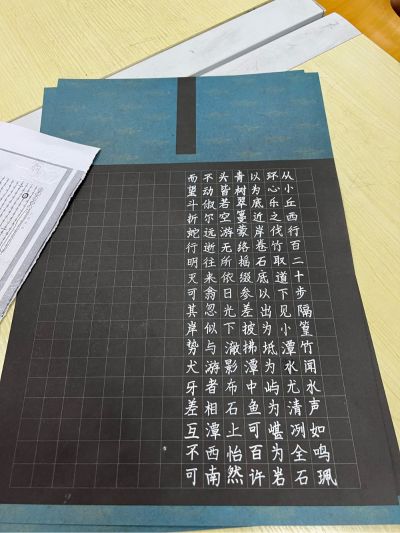 从小丘西行百二十步隔篁竹闻水声如鸣珮
环心乐之伐竹取道下见小潭水尤清冽全石
以为底近岸卷石底以出为坻为屿为嵁为岩
青树翠蔓蒙络摇缀参差披拂潭中鱼可百许
头皆若空游无所依日光下澈影布石上怡然
不动俶尔远逝往来翕忽似与游者相潭西南
而望斗折蛇行明灭可其岸势犬牙差互不可